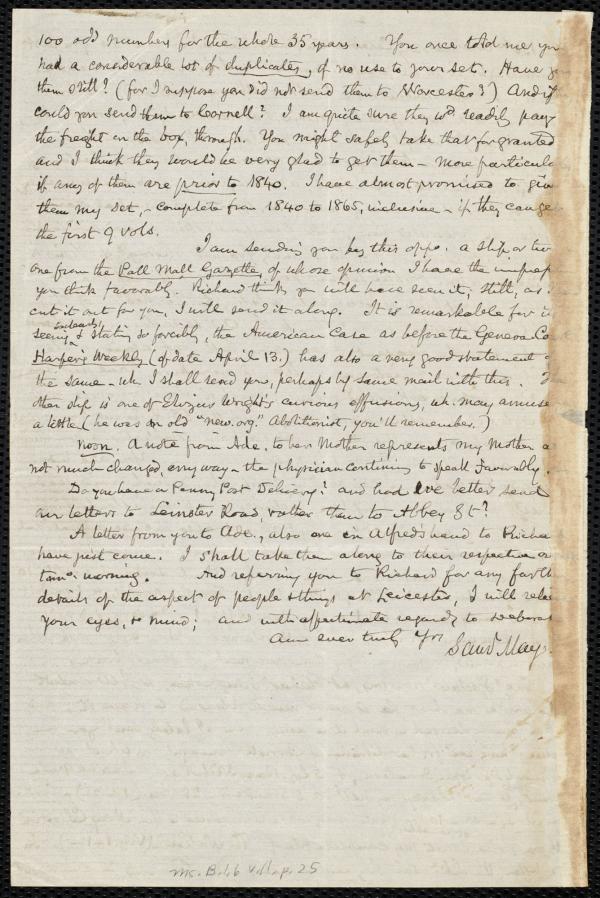 100 odd numbers for the whole 35 years. You once told me you
had a considerable lot of duplicates, of no use to your set. Have you
them still? (for I suppose you did not send them to Worcester?) And if
could you send them to Cornell? I am quite sure they wd. readily pay
the freight on the box, through. You might safely take that for granted
and I think they would be very glad to get them – more particularly
if any of them are prior to 1840. I have almost promised to give
them my set, – complete from 1840 to 1865, inclusive – if they can get
the first 9 vols.
I am sending you by this oppo. a slip or two
one from the Pall Mall Gazette, of whose opinion I have the impress
you think favorably. Richard thinks you will have seen it; still, as I
cut it out for you, I will send it along. It is remarkable for its
seeing & stating so clearly & forcibly, the American Case as before the Geneva Co
Harper's Weekly (of date April 13.) has also a very good statement of
the same – wh. I shall send you, perhaps by same mail with this. The
other slip is one of Elizur Wright's curious effusions, wh. may amuse
a little (he was an old "new. org." Abolitionist, you'll remember.)
Noon. A note from Ade. to her Mother represents my Mother as
not much changed, any way – the physician continuing to speak favorably.
Do you have a Penny Post Delivery? and had we better send
our letters to Leinster Road, rather than to Abbey St?
A letter from you to Ade., also one in Alfred's hand to Richard
have just come. I shall take them along to their respective ow
tomo. morning. And referring you to Richard for any farth
details of the aspect of people & things at Leicester, I will relea
your eyes, & mind; and with affectionate regards to Deborah
am ever truly Yrs
Saml. May.
Ms. B.1.6 v.11 p. 25